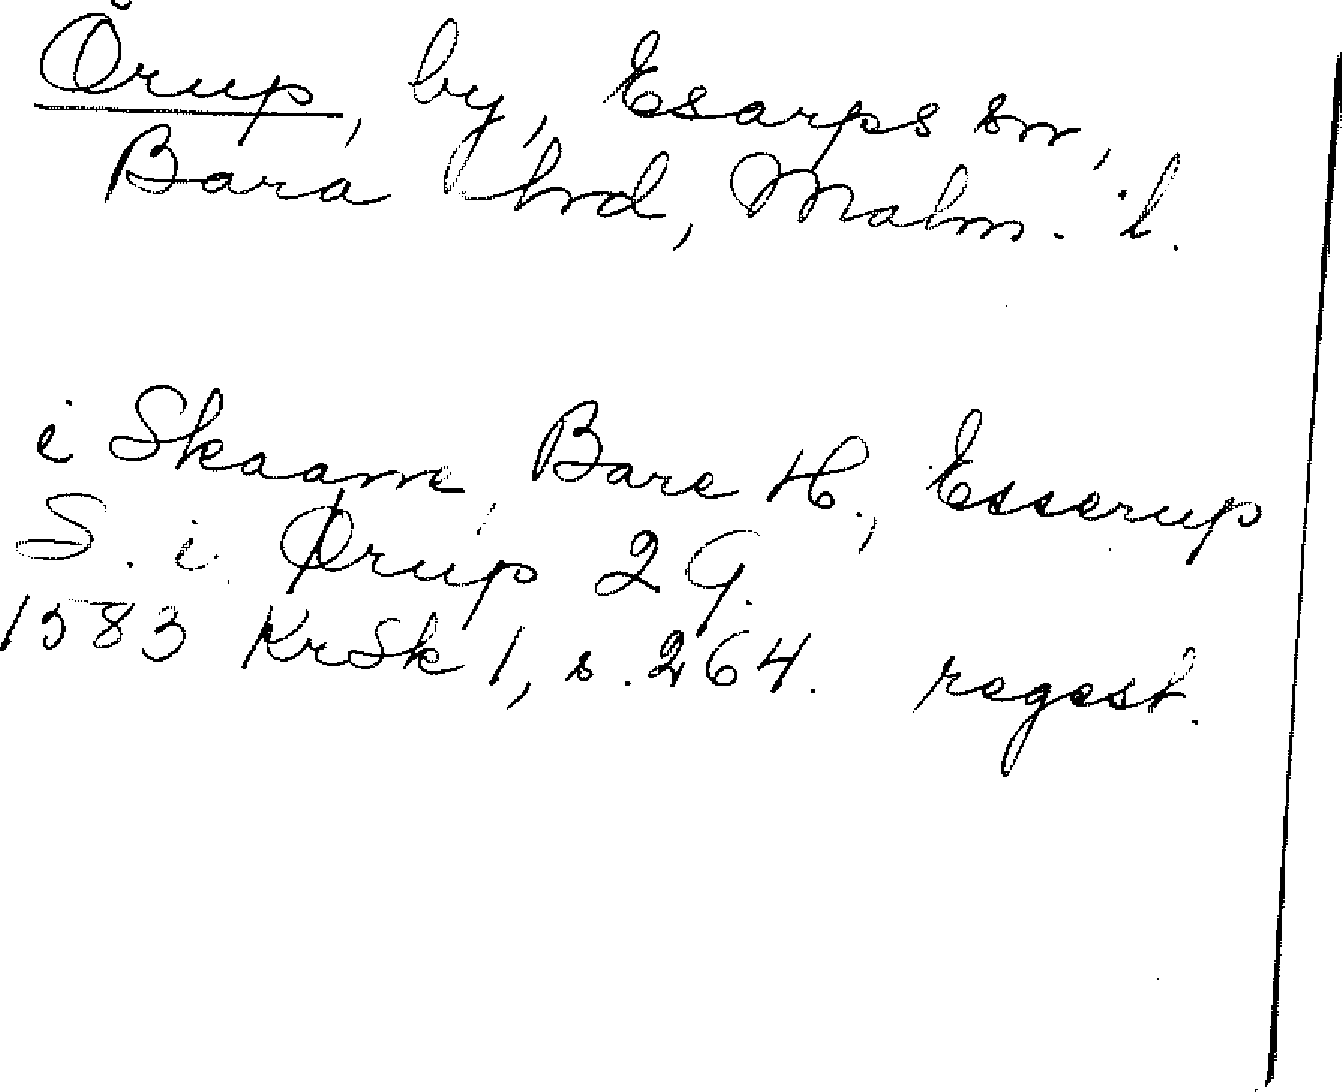 Örup, by, Esarps sn,
Bara hrd, Malm. l.
i Skaane, Bare H., Esserup
S. i Ørup 2 G.
1583 KrSk 1, s. 264. regest.